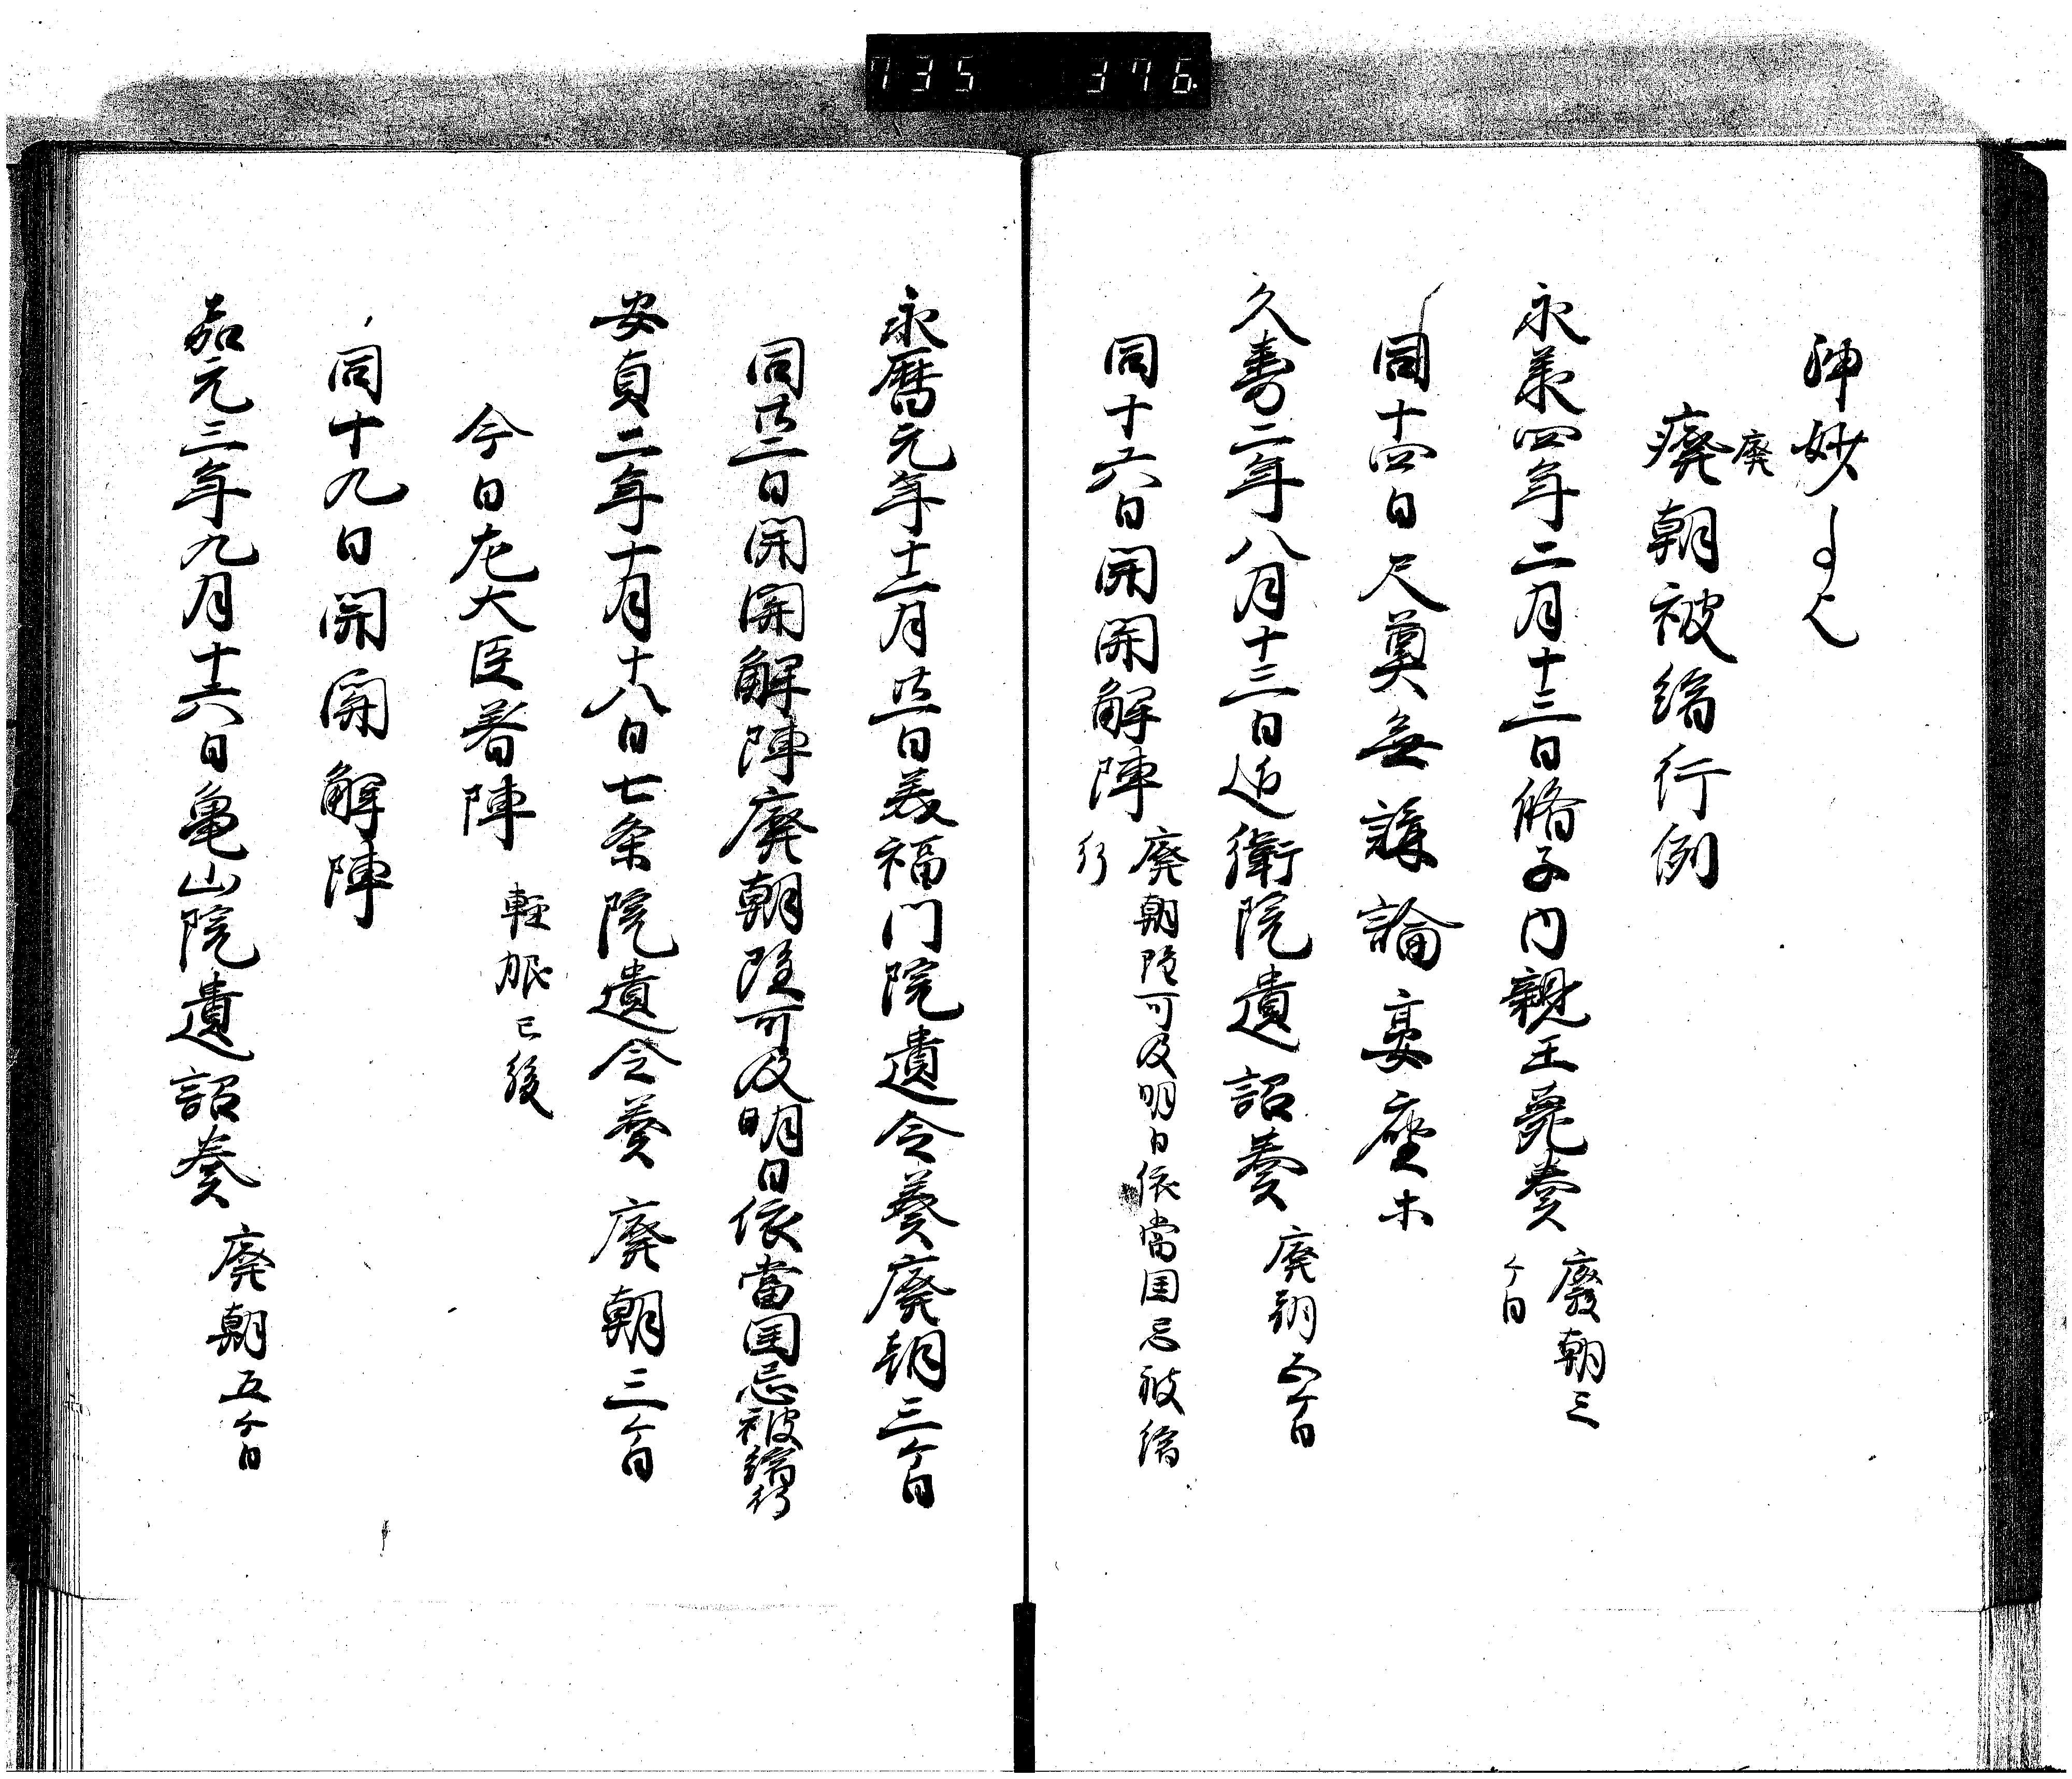 735 376
神妙〻〻
癈朝被縮行例
廃
永承四年二月十三日脩子内親王薨奏 廢朝三
ケ日
同十四日尺奠無講論宴座木
久寿二年八月十三日近衛院遺詔奏 廃朝五ケ日
同十六日開関解陣 廃朝随可及明日依當国忌被縮
行
永暦元年十二月廿一日美福門院遺令奏廃朝三ケ日
同廿二日開関解陣廃朝随可及明日依當国忌被縮行
安貞二年十月十八日七条院遺令奏 廃朝三ケ日
今日左大臣著陣 軽服已後
同十九日開関解陣
嘉元三年九月十六日亀山院遺詔奏 廃朝五ケ日